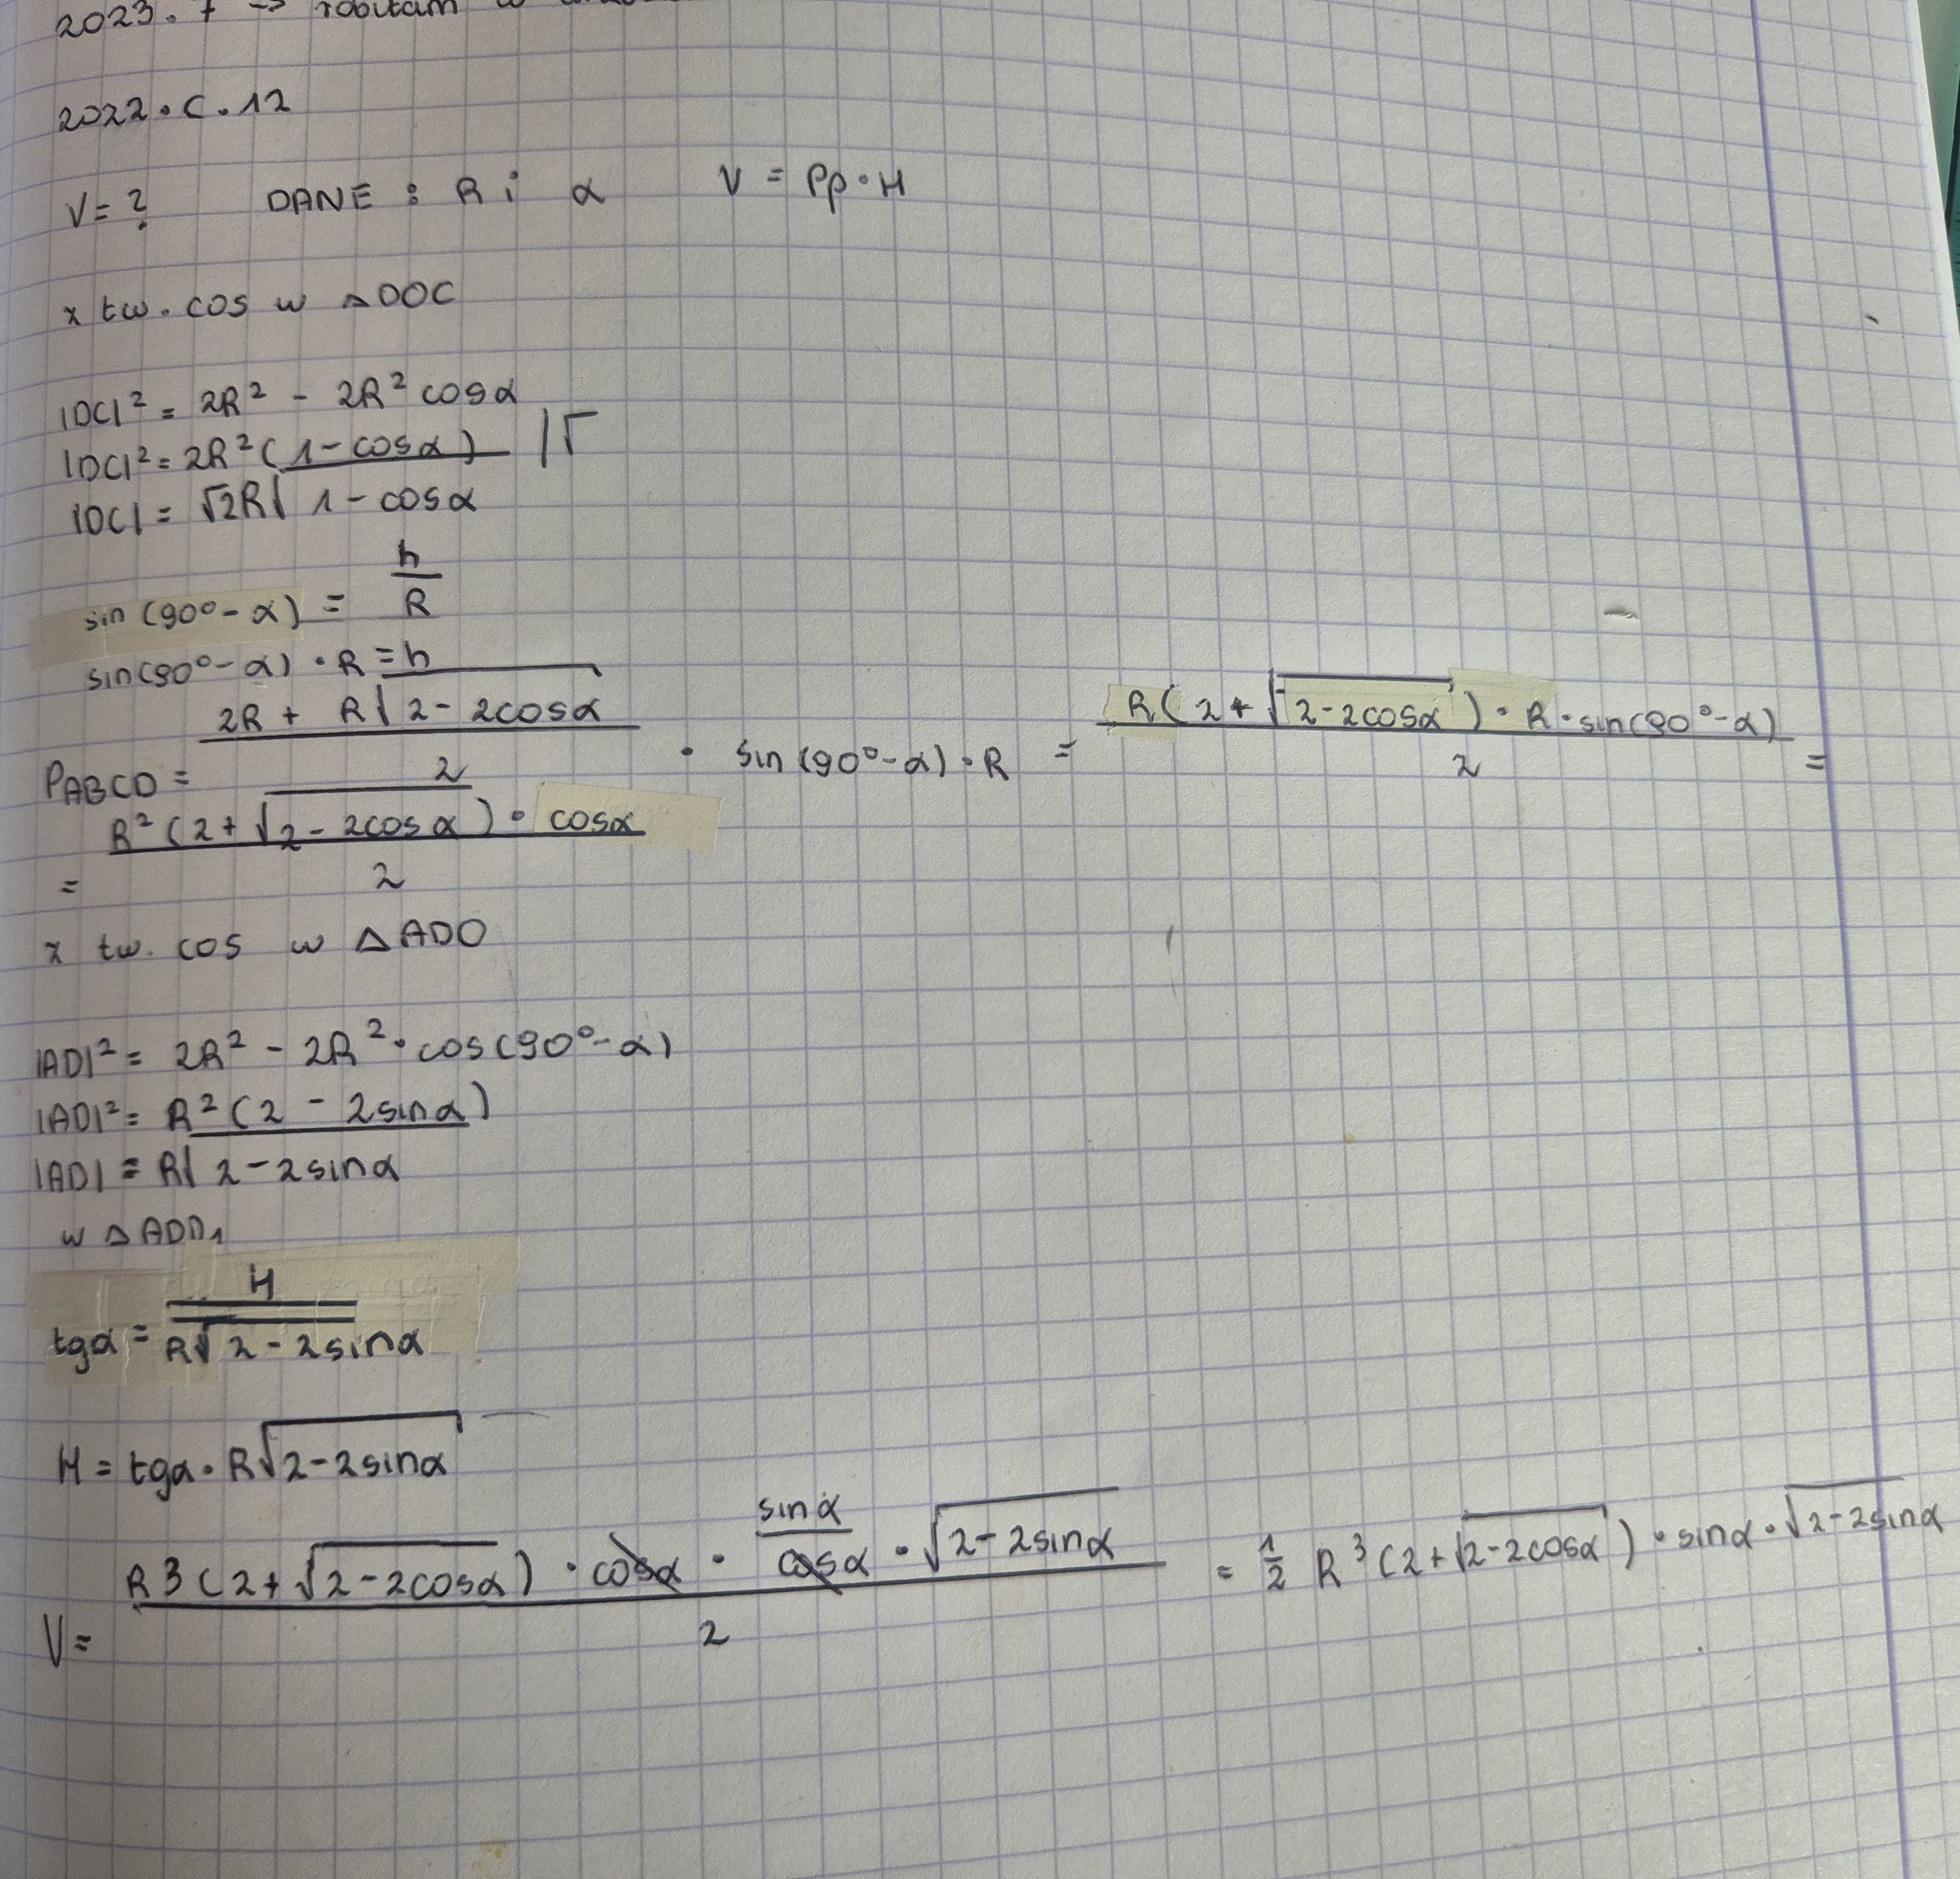 2023. 7 → robiłam w
2022.C.12
V = ? DANE : R i α V = Pp·H
x tw. cos w △DOC
|DC|² = 2R² - 2R² cosα
|DC|² = 2R²(1-cosα) /√
|DC| = √2R√1-cosα
sin(90°-α) = h/R
sin(90°-α)·R = h
P_ABCD = (2R + R√2-2cosα)/2 · sin(90°-α)·R = R(2+√2-2cosα)·R·sin(90°-α)/2 =
= R²(2+√2-2cosα)·cosα/2
x tw. cos w △ADO
|AD|² = 2R² - 2R²·cos(90°-α)
|AD|² = R²(2 - 2sinα)
|AD| = R√2-2sinα
w △ADD₁
tgα = H/R√2-2sinα
H = tgα·R√2-2sinα
V = R3(2+√2-2cosα)·cosα·sinα/cosα·√2-2sinα/2 = 1/2 R³(2+√2-2cosα)·sinα·√2-2sinα